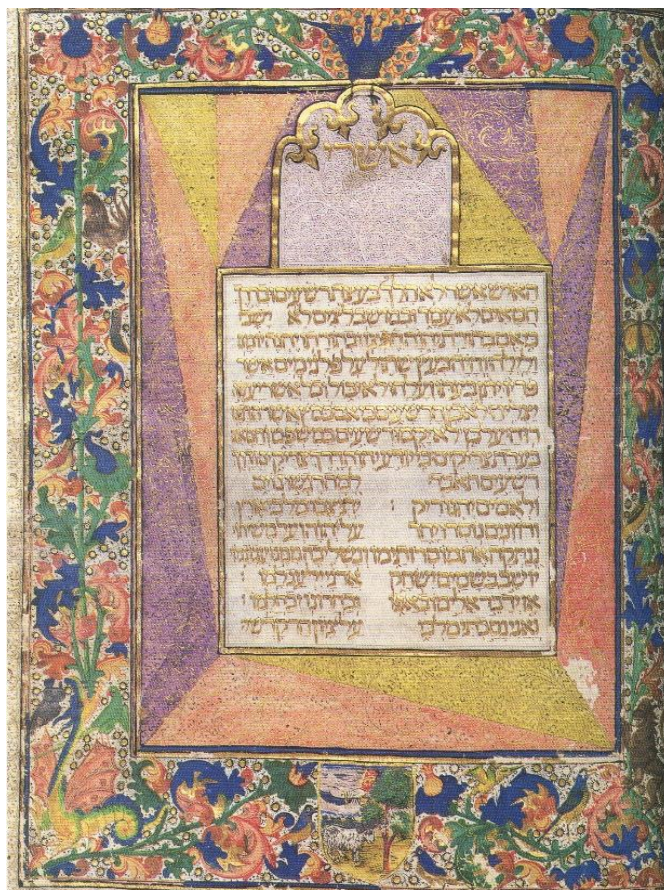 אשרי
האיש אשר לא הלך בעצת רשעים ובדרך
חטאים לא עמד ובמושב לצים לא ישב
כי אם בתורת יהוה חפצו ובתורתו יהגה יומם
ולילה והיה כעץ שתול על פלגי מים אשר
פריו יתן בעתו ועלהו לא יבול וכל אשר יעשה
יצליח לא כן הרשעים כי אם כמוץ אשר תדפנו
רוח על כן לא יקמו רשעים במשפט וחטאים
בעדת צדיקים כי יודע יהוה דרך צדיקים ודרך
רשעים תאבד למה רגשו גוים
ולאמים יהגו ריק יתיצבו מלכי ארץ
ורוזנים נוסדו יחד על יהוה ועל משיחו
ננתקה את מוסרותימו ונשליכה ממנו עבתימו
יושב בשמים ישחק אדני ילעג למו
אז ידבר אלימו באפו ובחרונו יבהלמו
ואני נסכתי מלכי על ציון הר קדשי